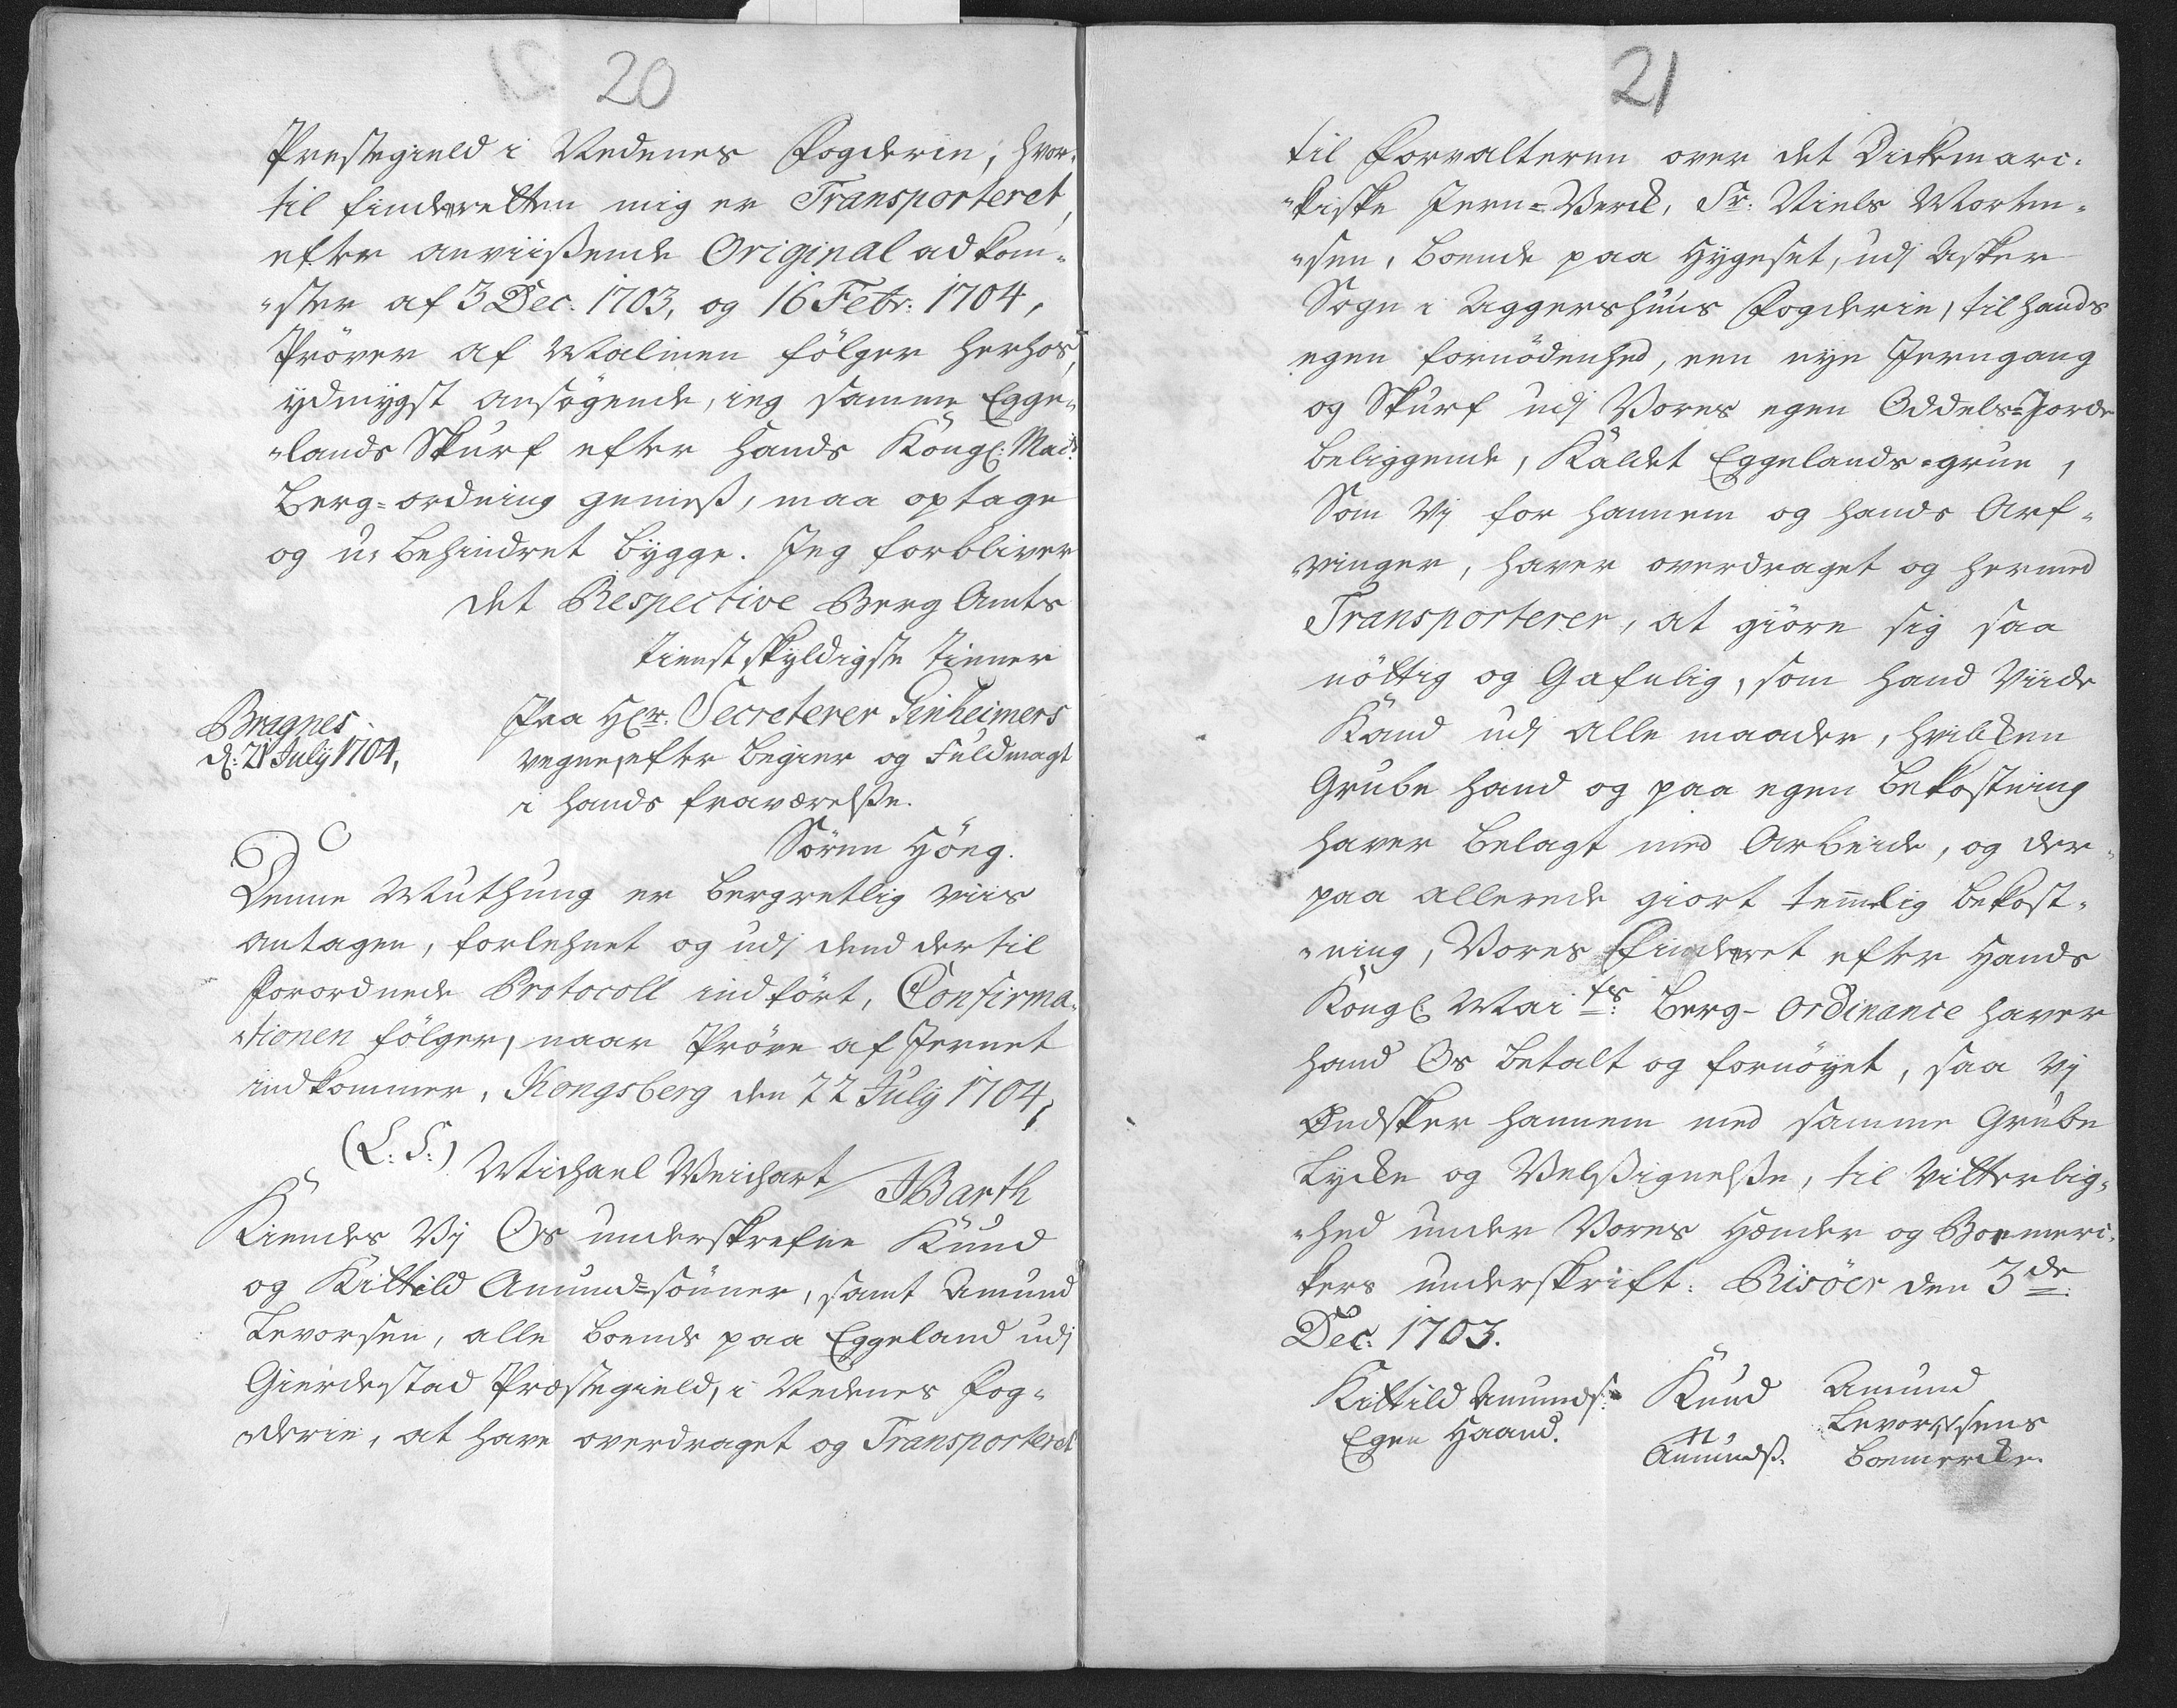 20
Prestegield i Nedenes Fogderie, hvor-
til finderretten mig er Transporteret,
efter anviißende Original adkom-
"ster af 3 Dec. 1703, og 16 Febr: 1704,
Pröver af Malmen fölger herhos,
ydmygst ansögende, ieg samme Egge-
"lands Skurf efter Hands Kongl: Mait:
Berg-ordning gemeß, maa optage
og u-behindret bÿgge. Jeg forbliver
det Respective Berg Amts
tienstskyldigste tienner
Bragnes
d: 21 July 1704,
Paa Hr: Secreterer Sinheimers
vegne, efter begier og Fuldmagt
i hands fraværelße.
Sören Höeg.
Denne Muthung er bergretlig viis
antagen, forlehnet og udj dend dertil
forordnede Protocoll indfört, Confirma-
"tionen fölger, naar Pröve af Jernet
indkommer, Kongsberg den 22 July 1704,
(L. S.) Michael Weichart / JBarth
Kiendes Vj Os underskrefne Knud
og Kittild Amund-sönner, samt Amund
Levorsen, alle boende paa Eggeland udj
Gierdestad Præstegield, i Nedenes Fog-
"derie, at have overdraget og Transporteret
21
til Forvalteren over det Dickemarc-
"kiske Jern-Verck, Sr: Niels Morten-
"sen, boende paa Hÿgeset, udj Asker
Sogn i Aggershuus Fogderie, til hands
egen fornödenhed, een nye Jerngang
og Skurf udj Vores egen Oddels-Jorde
beliggende, Kaldet Eggelands-grue,
Som Vj for hannem og hands Arf-
"vinger, haver overdraget og hermed
Transporterer, at giöre sig saa
nöttig og Gafnlig, som hand Viide
Kand udj alle maader, hvilcken
Grube hand og paa egen bekostning
haver belagt med Arbeide, og der-
paa allerede giort temmelig bekost-
"ning, Vores Finderret efter Hands
Kongl Maits: Berg-Ordinance haver
hand Os betalt og fornöyet, saa Vj
Ønsker hannem med samme Grube
Lycke og Velßignelße, til Vitterlig-
"hed under Vores Hænder og Bomerc-
kers underskrift: Risöer den 3de
Dec: 1703.
Kittild Amunds: Knud Amund
Egen Haand. Levorsens
Amundß. bomercke.